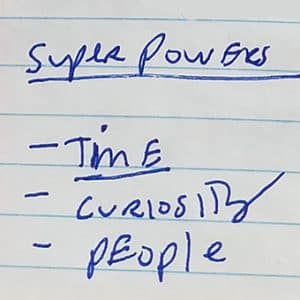 Super Powers
- Time
- Curiosity
- People